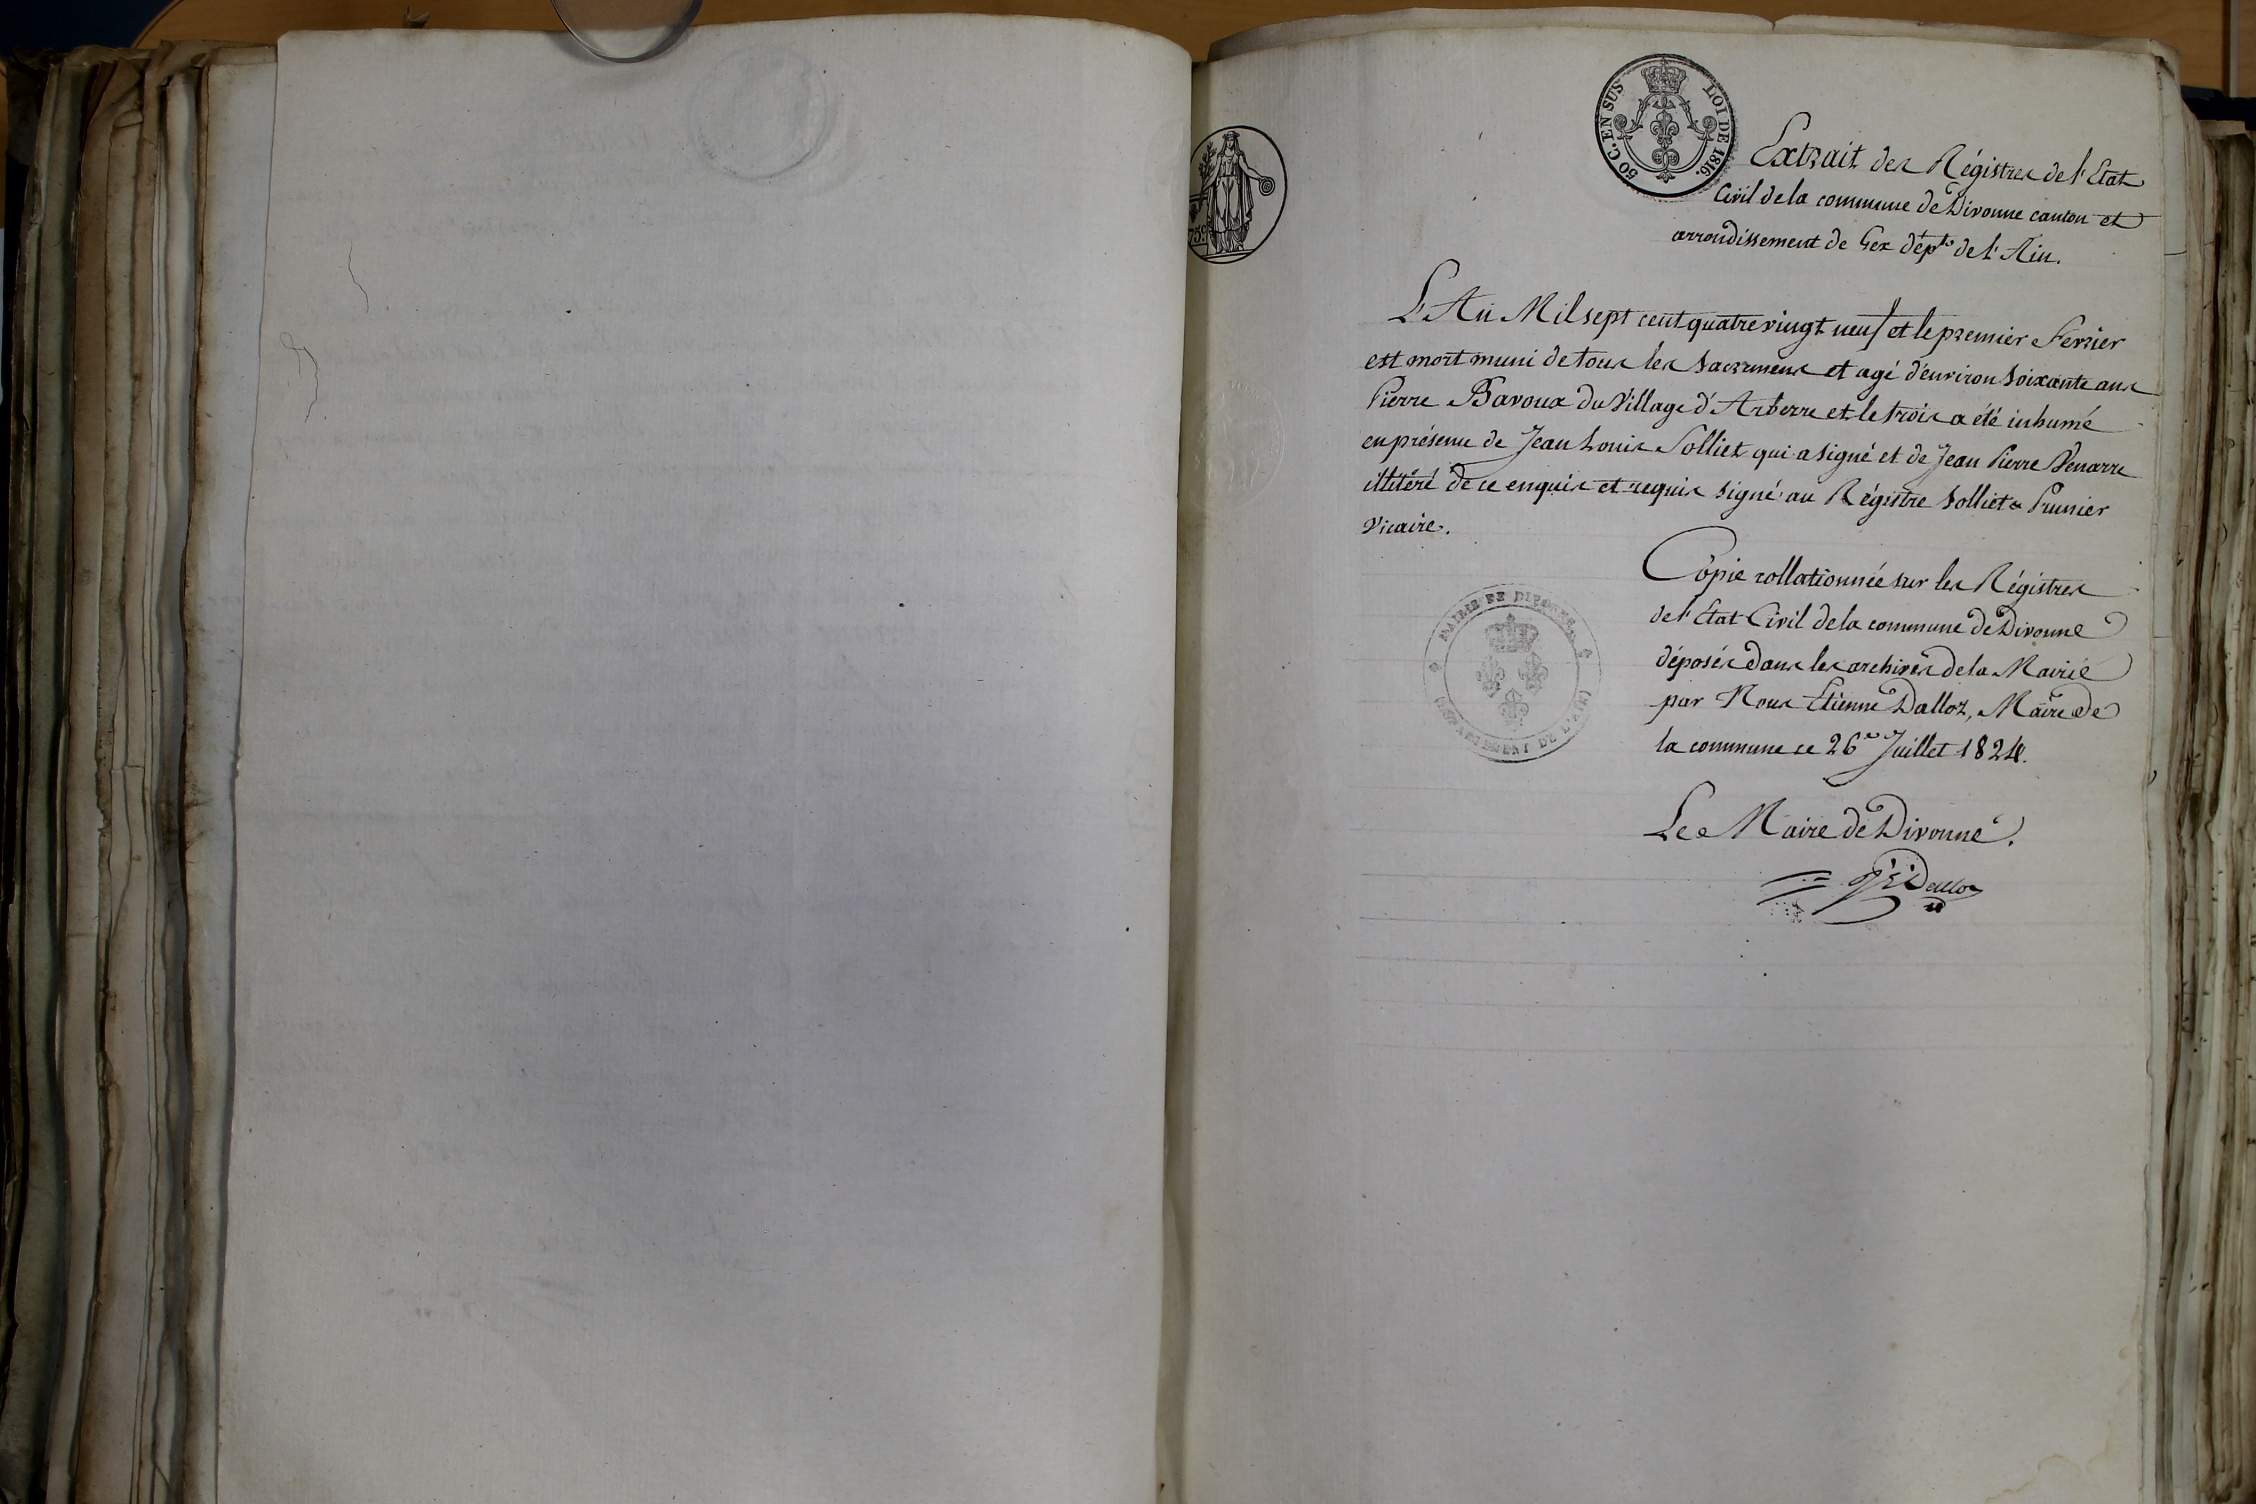 50 C. EN SUS
LOI DE 1816.
75c.
Extrait des Régistres de l'Etat
Civil de la commune de Divonne canton et
arrondissement de Gex dépt. de l'Ain.
L'An Mil sept cent quatre vingt neuf et le premier Fevrier
est mort muni de tous les Sacremens et agé d'environ soixante ans
Pierre Bavoux du Village d'Arberre et le trois a été inhumé
en présence de Jean Louis Solliet qui a signé et de Jean Pierre Venarre
illitéré de ce enquis et requis signé au Régistre Solliet & Prunier
Vicaire.
Copie collationnée sur les Régistres
de l'Etat Civil de la commune de Divonne
déposés dans les archives de la Mairie
par Nous Etienne Dalloz, Maire de
la commune ce 26e Juillet 1824.
MAIRIE DE DIVONNE
(DÉPARTEMENT DE L'AIN)
Le Maire de Divonne.
Dalloz